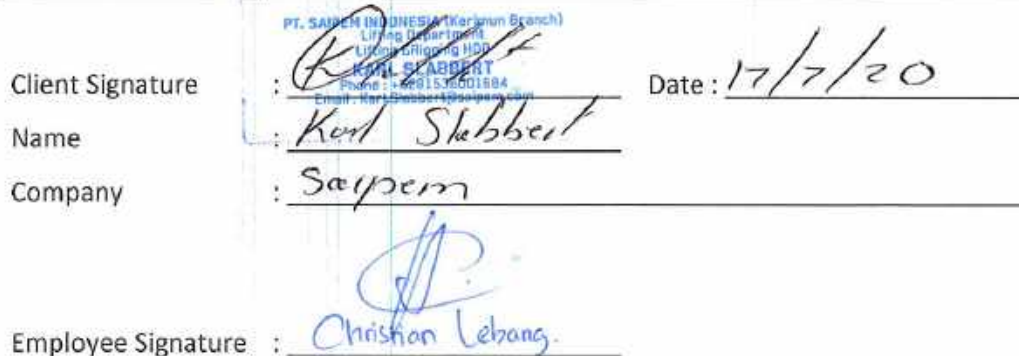 PT. SAIPEM INDONESIA (Karimun Branch)
Lifting Department
Lifting & Rigging HOD
KARL SLABBERT
Phone : +6281536001684
Email : Karl.Slabbert@saipem.com
Client Signature :
Date : 17/7/20
Name : Karl Slabbert
Company : Saipem
Employee Signature : Christian Lebang.